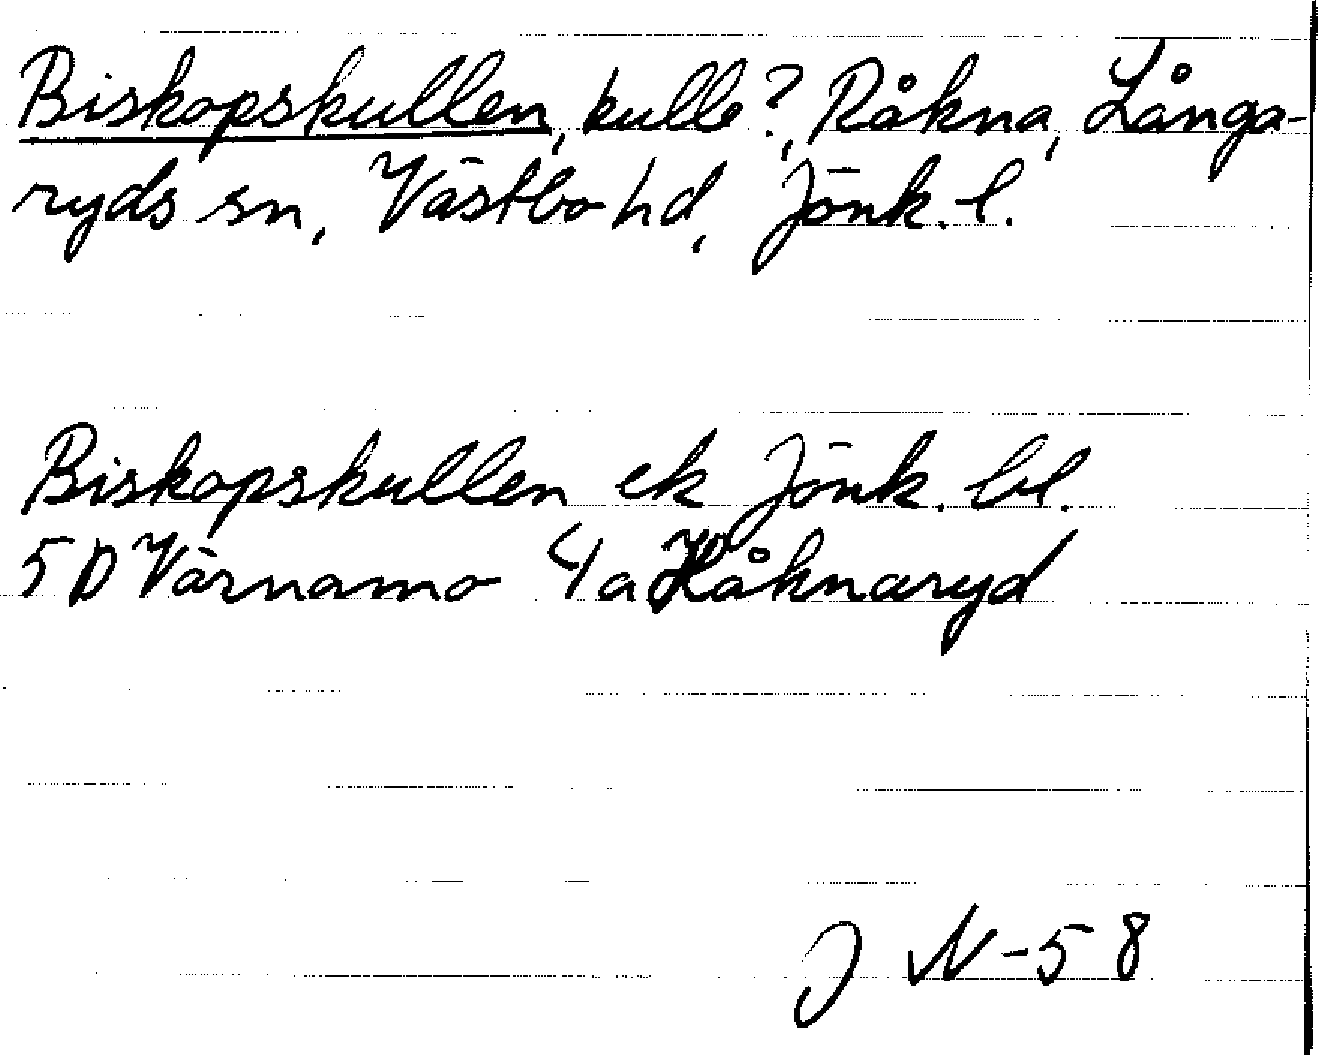 Biskopskullen, kulle?, Råkna, Långa-
ryds sn, Västbo hd, Jönk. l.
Biskopskullen ek Jönk. bl.
5 D Värnamo 4 a Håknaryd
J N-58